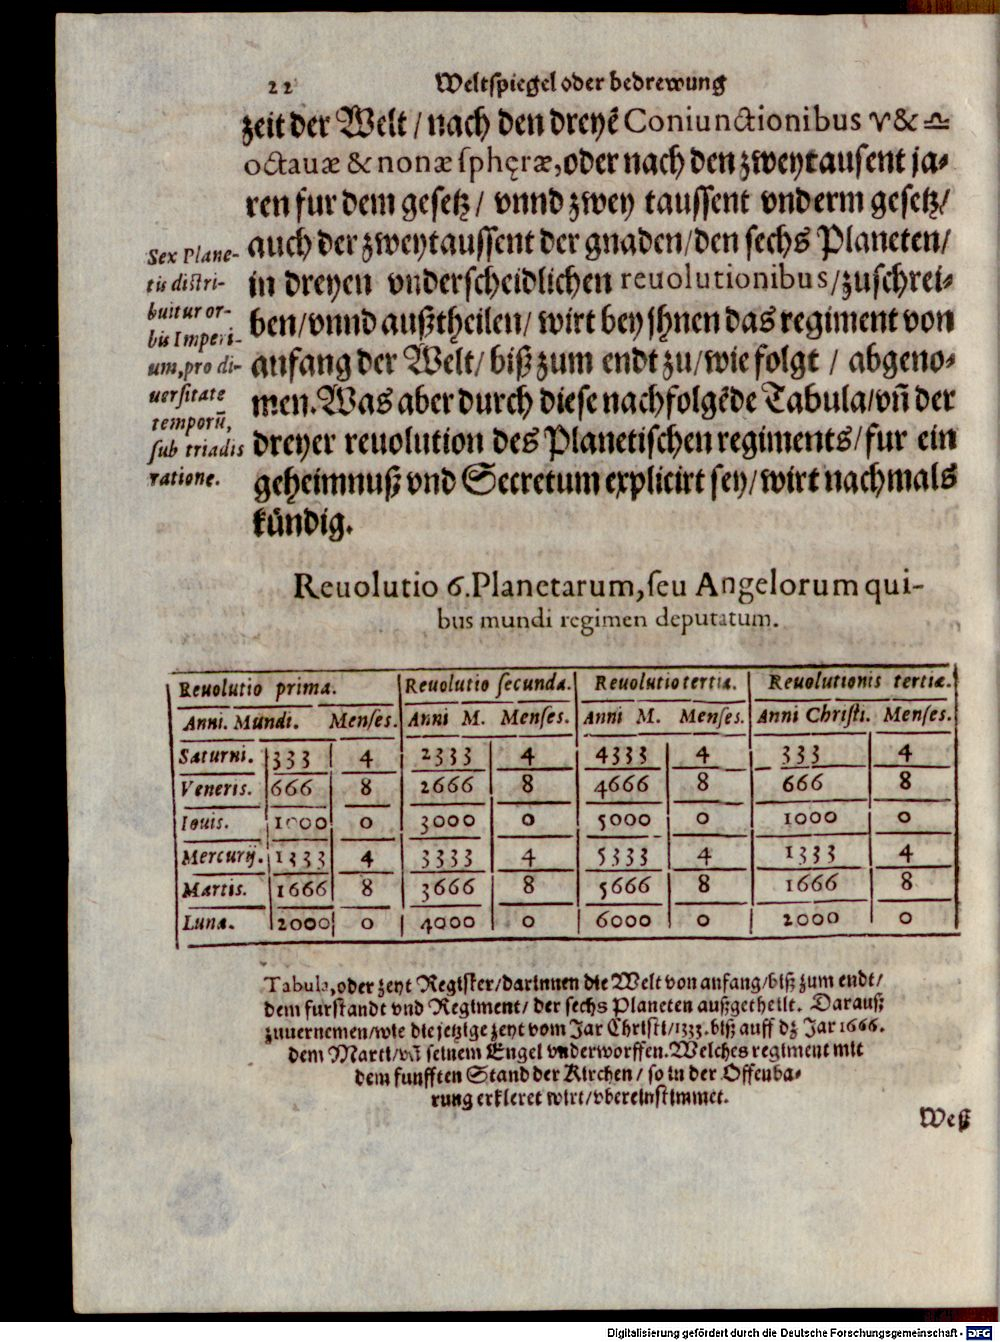 22 Weltspiegel oder bedrewung
zeit der Welt / nach den dreyē Coniunctionibus ♈ & ♎
octauæ & nonæ sphęræ, oder nach den zweytausent ja⸗
ren fur dem gesetz / vnnd zwey taussent vnderm gesetz/
auch der zweytaussent der gnaden/den sechs Planeten/
in dreyen vnderscheidlichen reuolutionibus/zuschrei⸗
ben/vnnd außtheilen/ wirt bey jhnen das regiment von
anfang der Welt/ biß zum endt zu/wie folgt / abgeno⸗
men. Was aber durch diese nachfolgēde Tabula/vñ der
dreyer reuolution des Planetischen regiments/fur ein
geheimnuß vnd Secretum explicirt sey/wirt nachmals
kündig.
Sex Plane-
tis distri-
buitur or-
bis Imperi-
um, pro di-
uersitate
temporū,
sub triadis
ratione.
Reuolutio 6. Planetarum, seu Angelorum qui-
bus mundi regimen deputatum.
Reuolutio prima. Reuolutio secunda. Reuolutio tertia. Reuolutionis tertiæ.
Anni. Mundi. Menses. Anni M. Menses. Anni M. Menses. Anni Christi. Menses.
Saturni. 333 4 2333 4 4333 4 333 4
Veneris. 666 8 2666 8 4666 8 666 8
Iouis. 1000 0 3000 0 5000 0 1000 0
Mercurij. 1333 4 3333 4 5333 4 1333 4
Martis. 1666 8 3666 8 5666 8 1666 8
Lunæ. 2000 0 4000 0 6000 0 2000 0
Tabula, oder zeyt Register/darinnen die Welt von anfang/biß zum endt/
dem furstandt vnd Regiment/ der sechs Planeten außgetheilt. Darauß
zuuernemen/wie die jetzige zeyt vom Jar Christi/1333. biß auff dz Jar 1666.
dem Marti/vñ seinem Engel vnderworffen. Welches regiment mit
dem funfften Stand der Kirchen/ so in der Offenba⸗
rung erkleret wirt/vbereinstimmet.
Weß
Digitalisierung gefördert durch die Deutsche Forschungsgemeinschaft - DFG